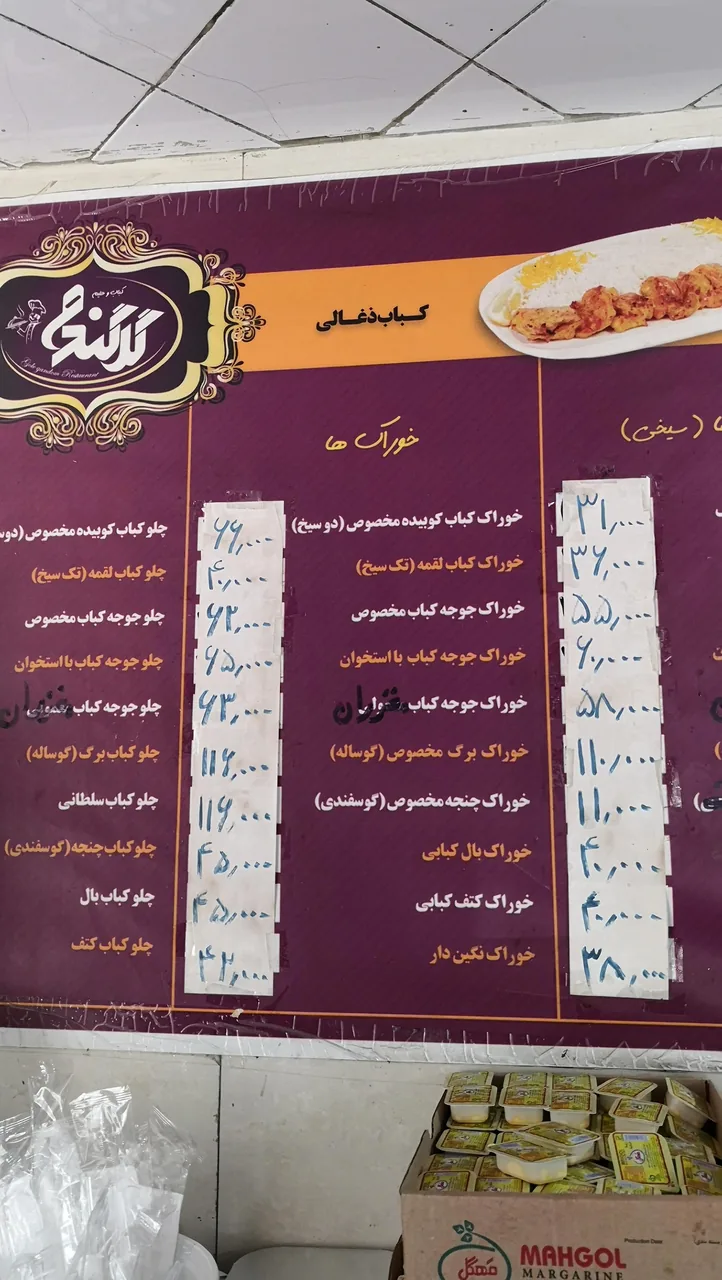 کباب و حلیم
گل گندم
Gole gandom Restaurant
کباب ذغالی
(سیخی)
خوراک ها
۳۱,۰۰۰
۳۶,۰۰۰
۵۵,۰۰۰
۶۰,۰۰۰
۵۸,۰۰۰
۱۱۰,۰۰۰
۱۱,۰۰۰
۴۰,۰۰۰
۴۰,۰۰۰
۳۸,۰۰۰
خوراک کباب کوبیده مخصوص (دو سیخ) ۶۶,۰۰۰
خوراک کباب لقمه (تک سیخ) ۴۰,۰۰۰
خوراک جوجه کباب مخصوص ۶۲,۰۰۰
خوراک جوجه کباب با استخوان ۶۵,۰۰۰
خوراک جوجه کباب معمولی ۶۳,۰۰۰
خوراک برگ مخصوص (گوساله) ۱۱۶,۰۰۰
خوراک چنجه مخصوص (گوسفندی) ۱۱۶,۰۰۰
خوراک بال کبابی ۴۵,۰۰۰
خوراک کتف کبابی ۴۵,۰۰۰
خوراک نگین دار ۴۲,۰۰۰
چلو کباب کوبیده مخصوص (دو
چلو کباب لقمه (تک سیخ)
چلو جوجه کباب مخصوص
چلو جوجه کباب با استخوان
چلو جوجه کباب معمولی
چلو کباب برگ (گوساله)
چلو کباب سلطانی
چلو کباب چنجه (گوسفندی)
چلو کباب بال
چلو کباب کتف
Production Date:
مهگل
MAHGOL
MARGARINE